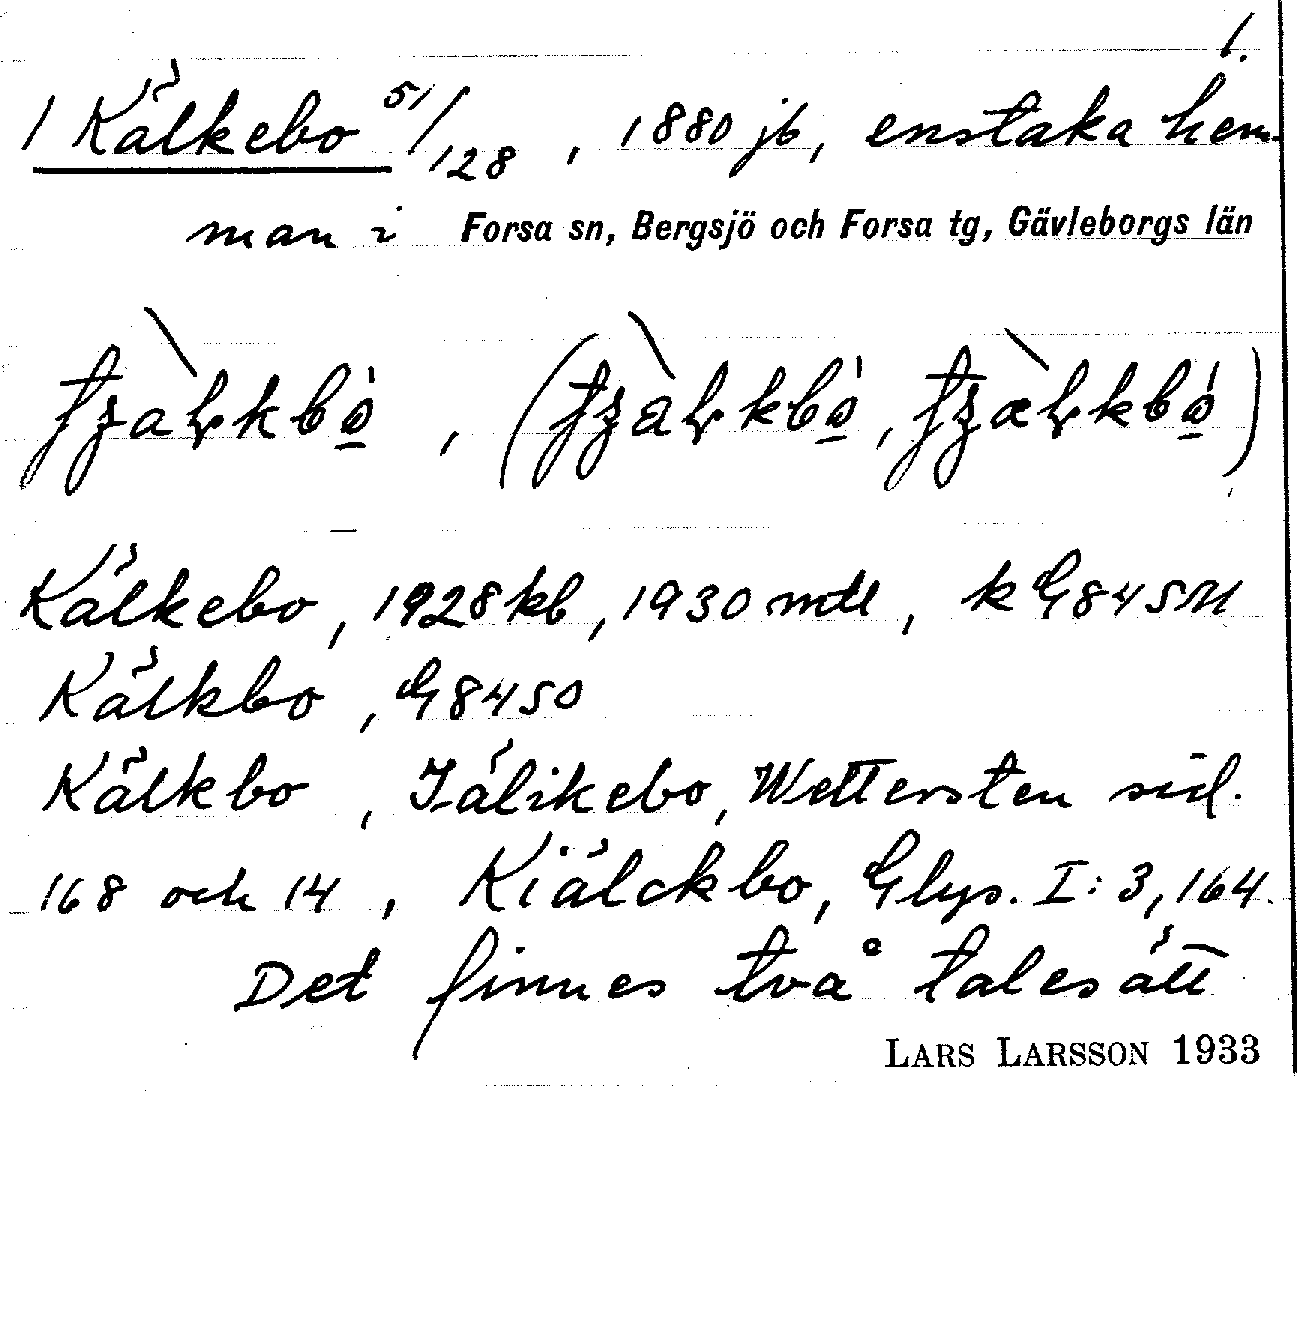 1.
1 Kälkebo 51/128, 1880 jb, enstaka hem-
man i Forsa sn, Bergsjö och Forsa tg, Gävleborgs län
Kälkebo, 1928 kb, 1930 mtl, k G84SM
Kälkbo, G84SO
Kälkbo, Jälikebo, Wettersten sid.
168 och 14, Kiälckbo, Glys. I: 3, 164.
Det finnes två talesätt
LARS LARSSON 1933